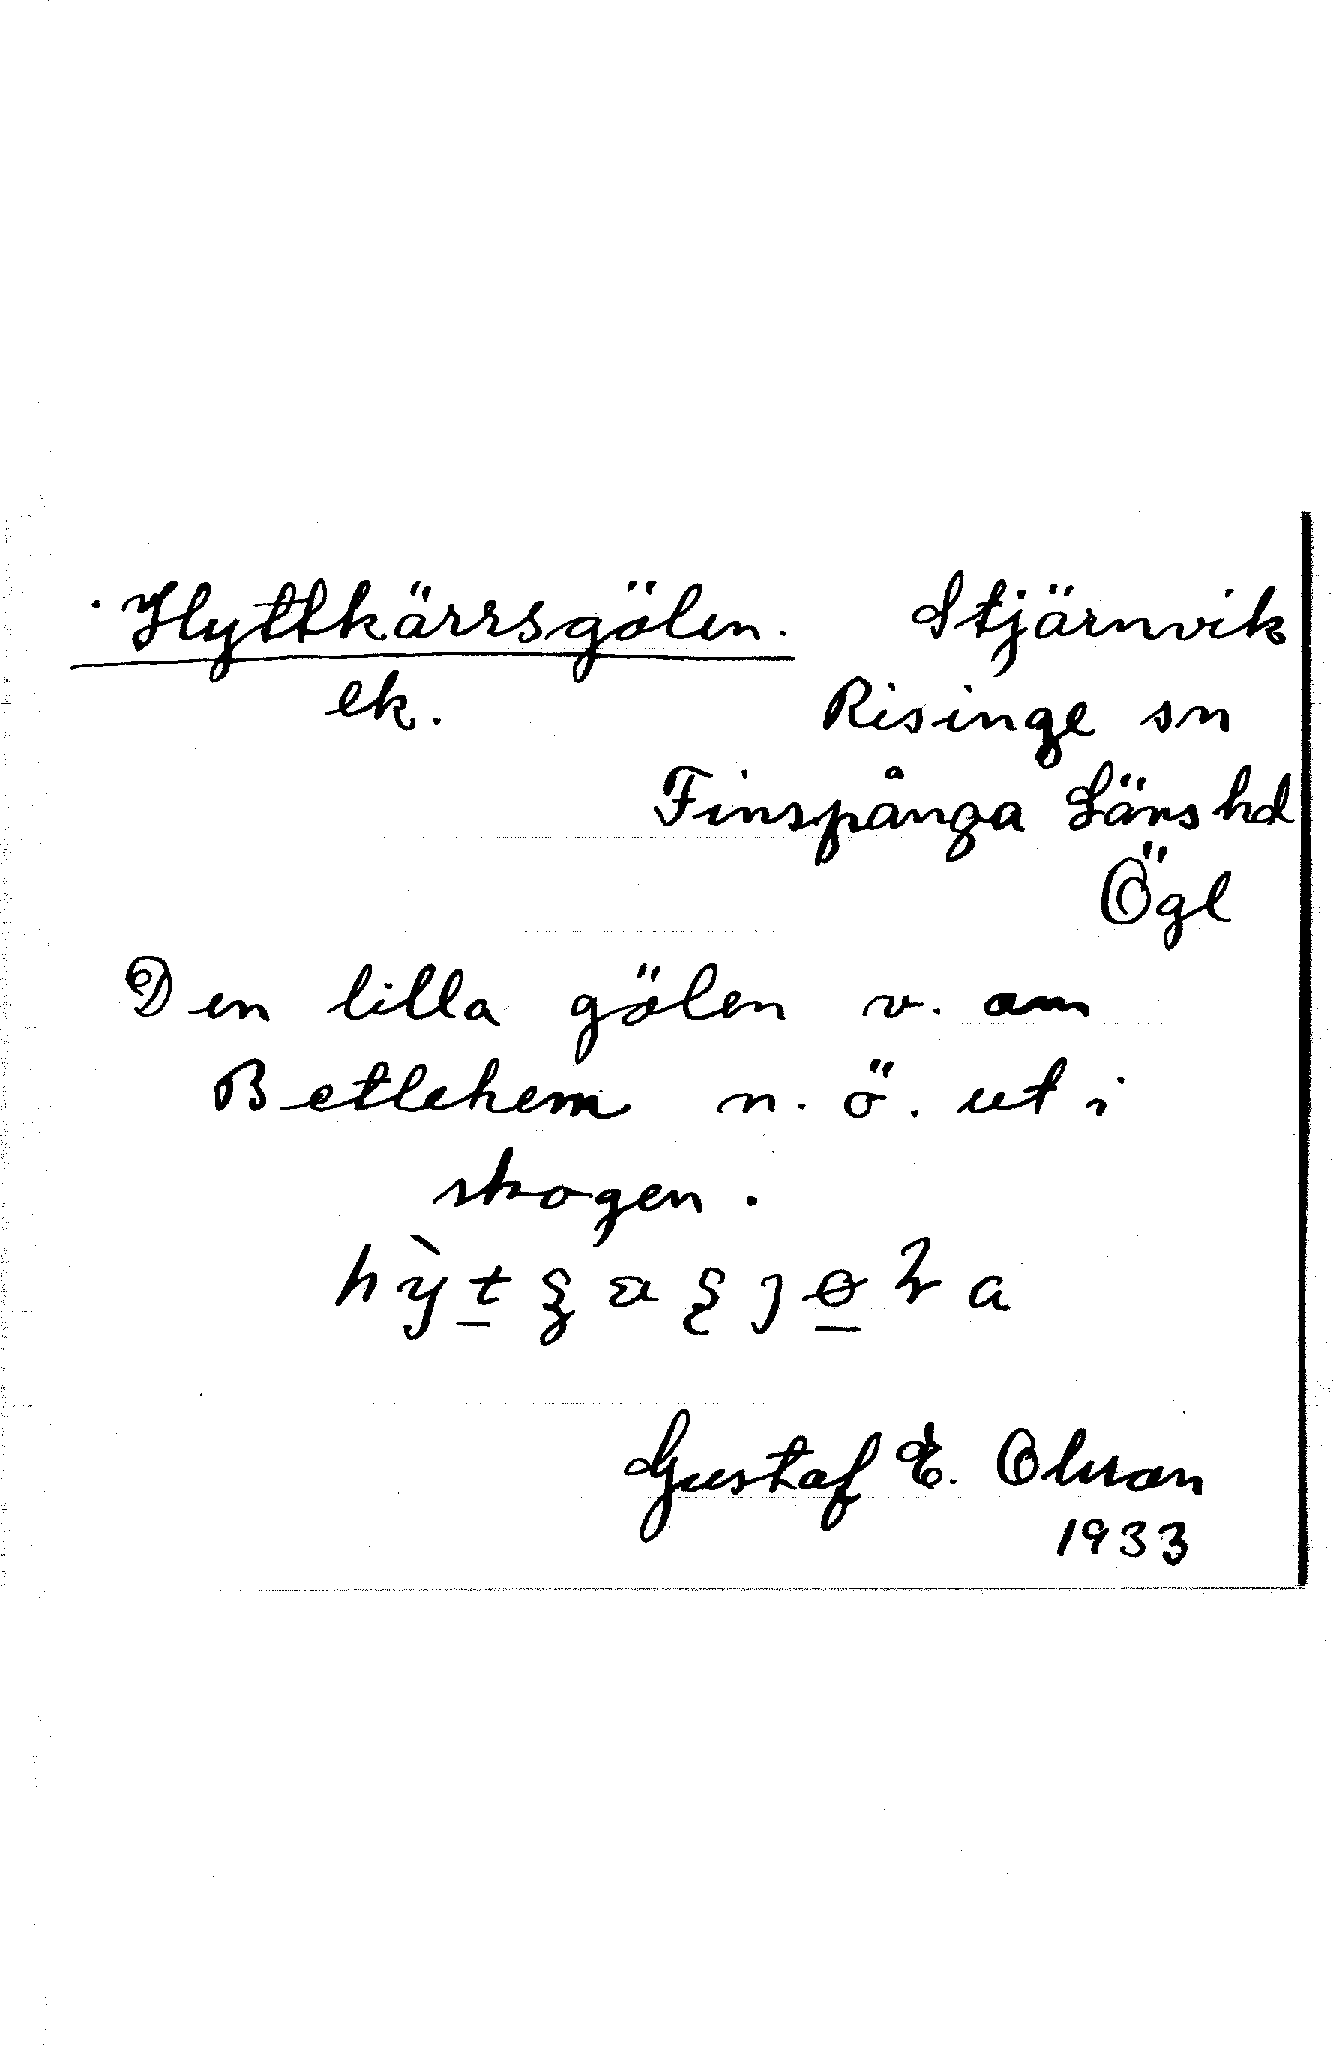 Hyttkärrsgölen.
ek.
Stjärnvik
Risinge sn
Finspånga Läns hd
Ögl
Den lilla gölen v. om
Betlehem n. ö. ut i
skogen.
Gustaf E. Olsson
1933